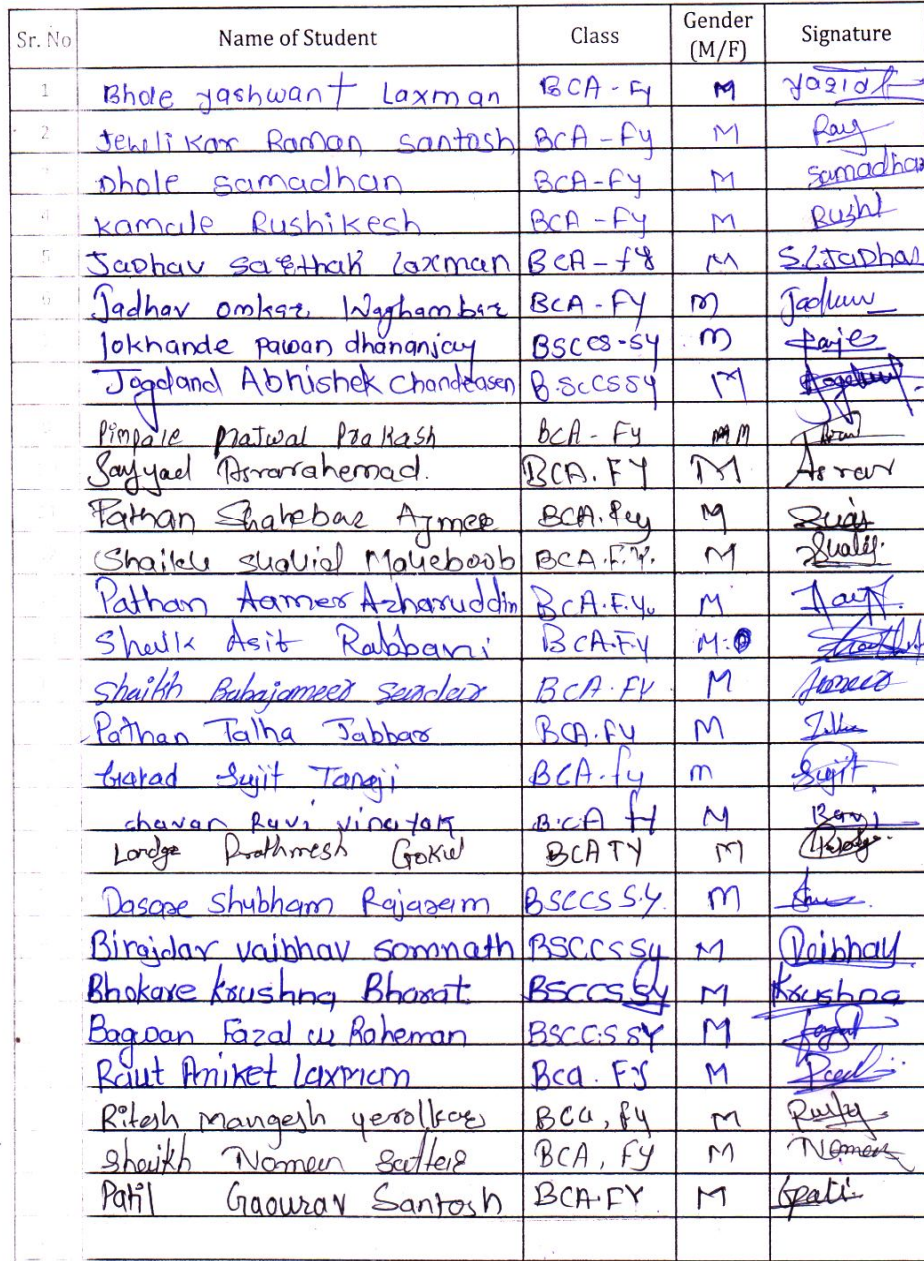 Sr. No Name of Student Class Gender (M/F) Signature
1 Bhole yashwant Laxman BCA - Fy M
2 Jewlikar Raman santosh BCA - Fy M Ray
Dhole samadhan BCA - Fy M samadhan
4 kamale Rushikesh BCA - Fy M Rushi
5 JaDhav sarthak laxman BCA - fy M S.L.JaDhav
6 Jadhav omkar Waghambar BCA - FY M Jadhav
lokhande pawan dhananjay BSCCS - SY M
Jogdand Abhishek Chandrasen B.ScCSSY M
Pimpale Prajwal Prakash BCA - Fy M M
Sayyad Asrarahemad. BCA. FY M Asrar
Pathan Shahebaz Azmee BCA. Fey M
Shaikh Maheboob BCA.F.Y. M
Pathan Aamer Azharuddin BCA.F.Y. M
Sheik Asif Rabbani BCA.F.Y M.
Shaikh Babajameer BCA. FY M
Pathan Talha Jabbar BCA. fy M
Garad Sujit Tanaji BCA. fy m Sujit
chavan Ravi vinayak B.CA fy M Ravi
Londge Prathmesh Gokul BCA TY M
Dasare Shubham Rajaram BSCCS S.Y. M
Birajdar vaibhav somnath BSCCS Sy M Veibhav
Bhokare krushna Bharat BSCCS Sy M Krushna
Bagwan Fazal ur Raheman BSCCS SY M
Raut Aniket laxman Bca. Fy M
Ritesh mangesh yerolkar BCa, fy M
Shaikh Nomen Satter BCA, FY M Nomen
Patil Gaourav Santosh BCA.FY M Gpatil